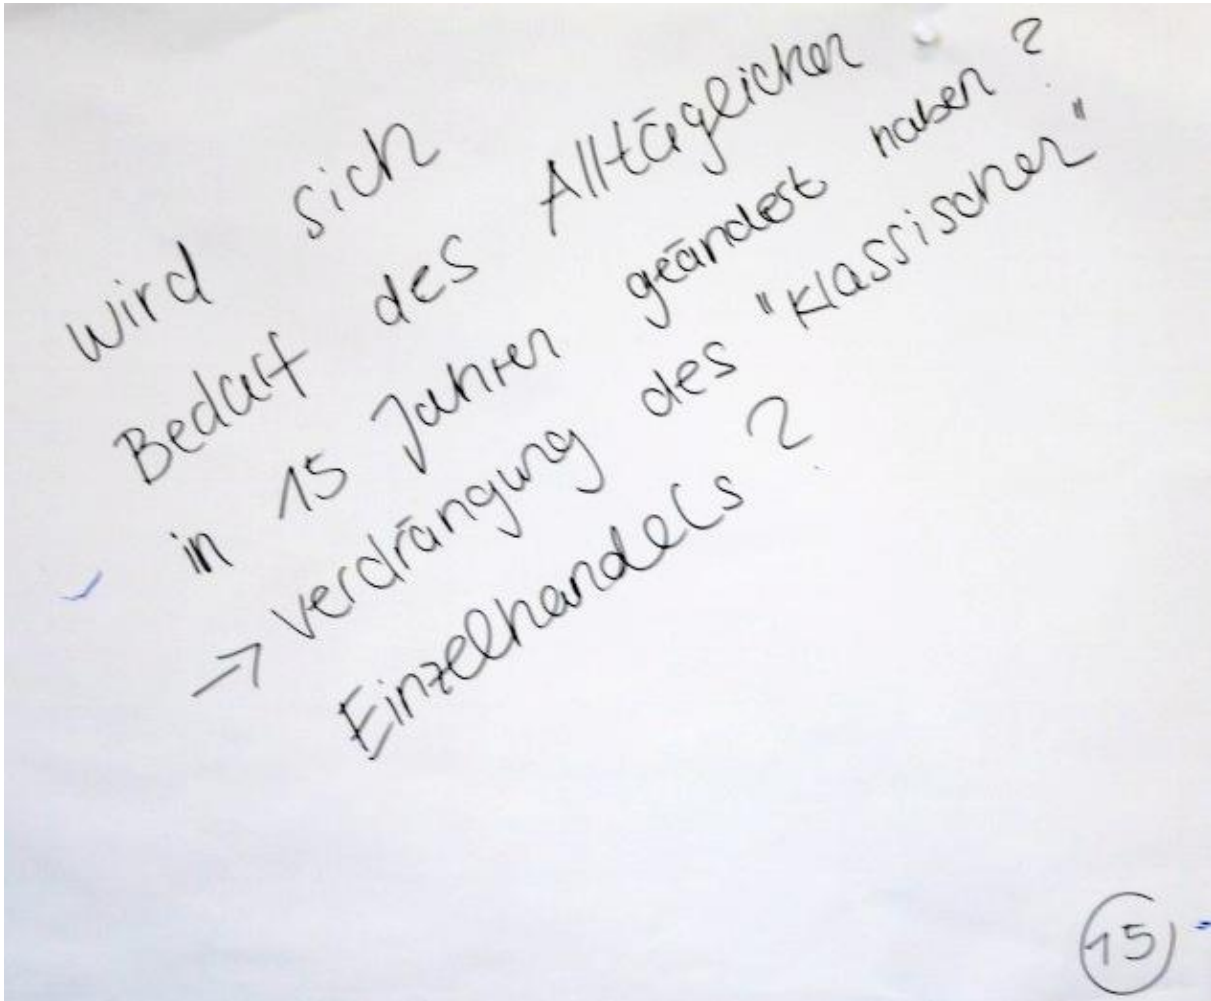 wird sich
Bedarf des Alltäglichen ?
in 15 Jahren geändert haben ?
→ verdrängung des "klassischen"
Einzelhandels ?
15